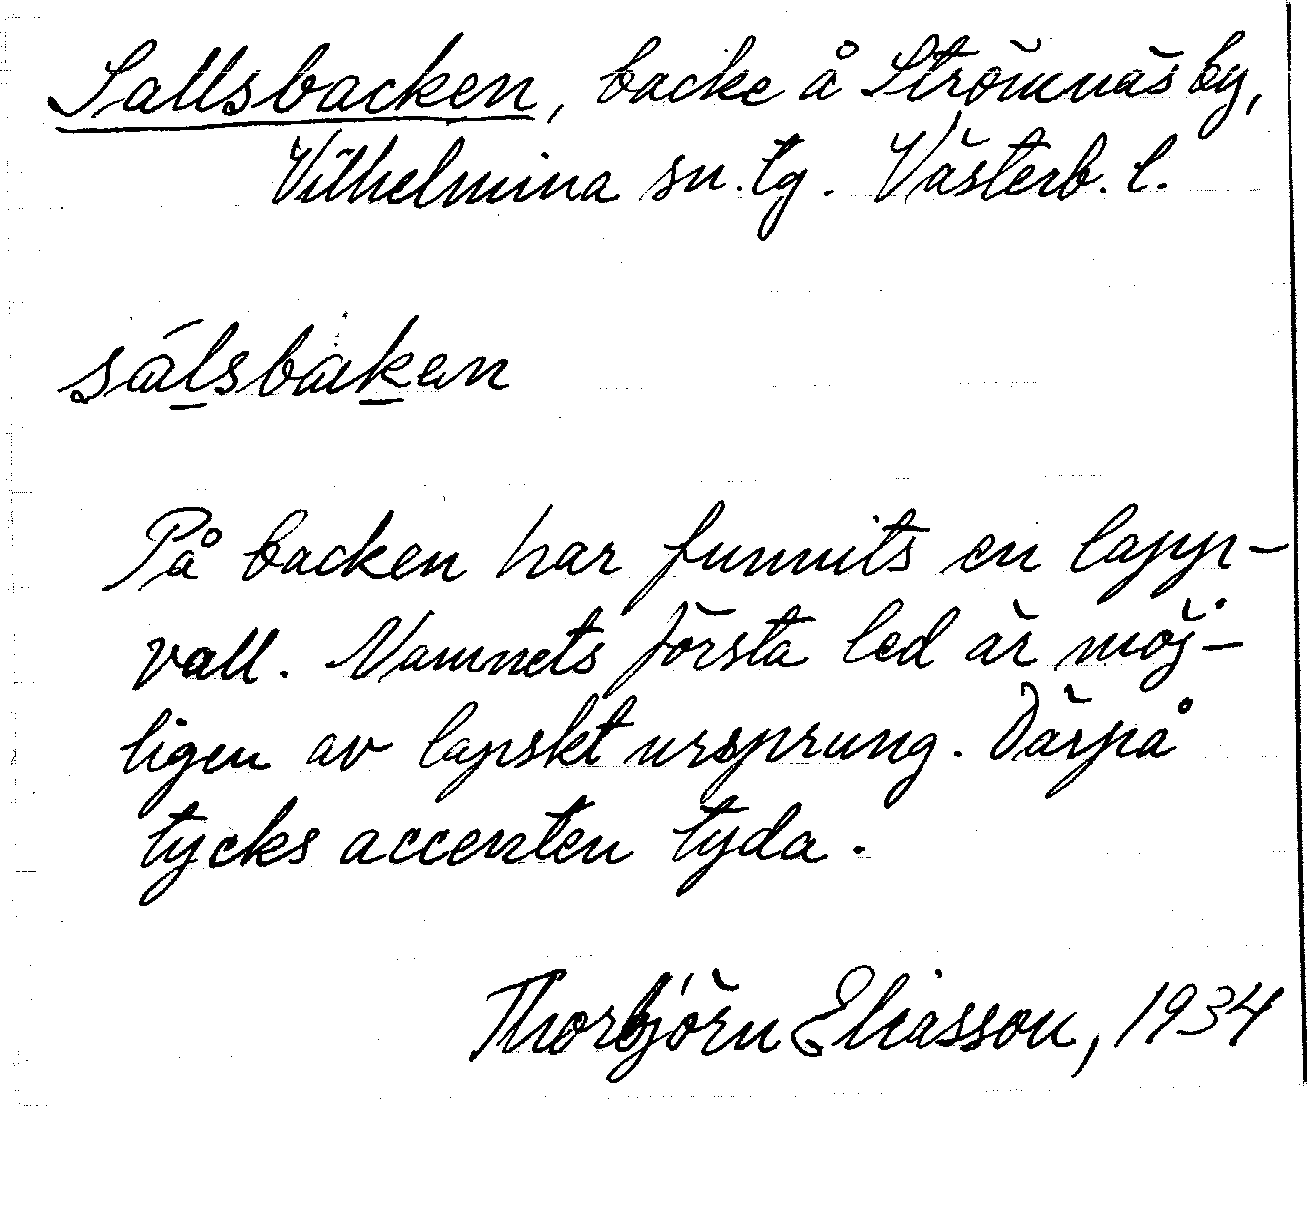 Sallsbacken, backe å Strömnäs by,
Vilhelmina sn. tg. Västerb. l.
sálsbaken
På backen har funnits en lapp-
vall. Namnets första led är möj-
ligen av lapskt ursprung. Därpå
tycks accenten tyda.
Thorbjörn Eliasson, 1934